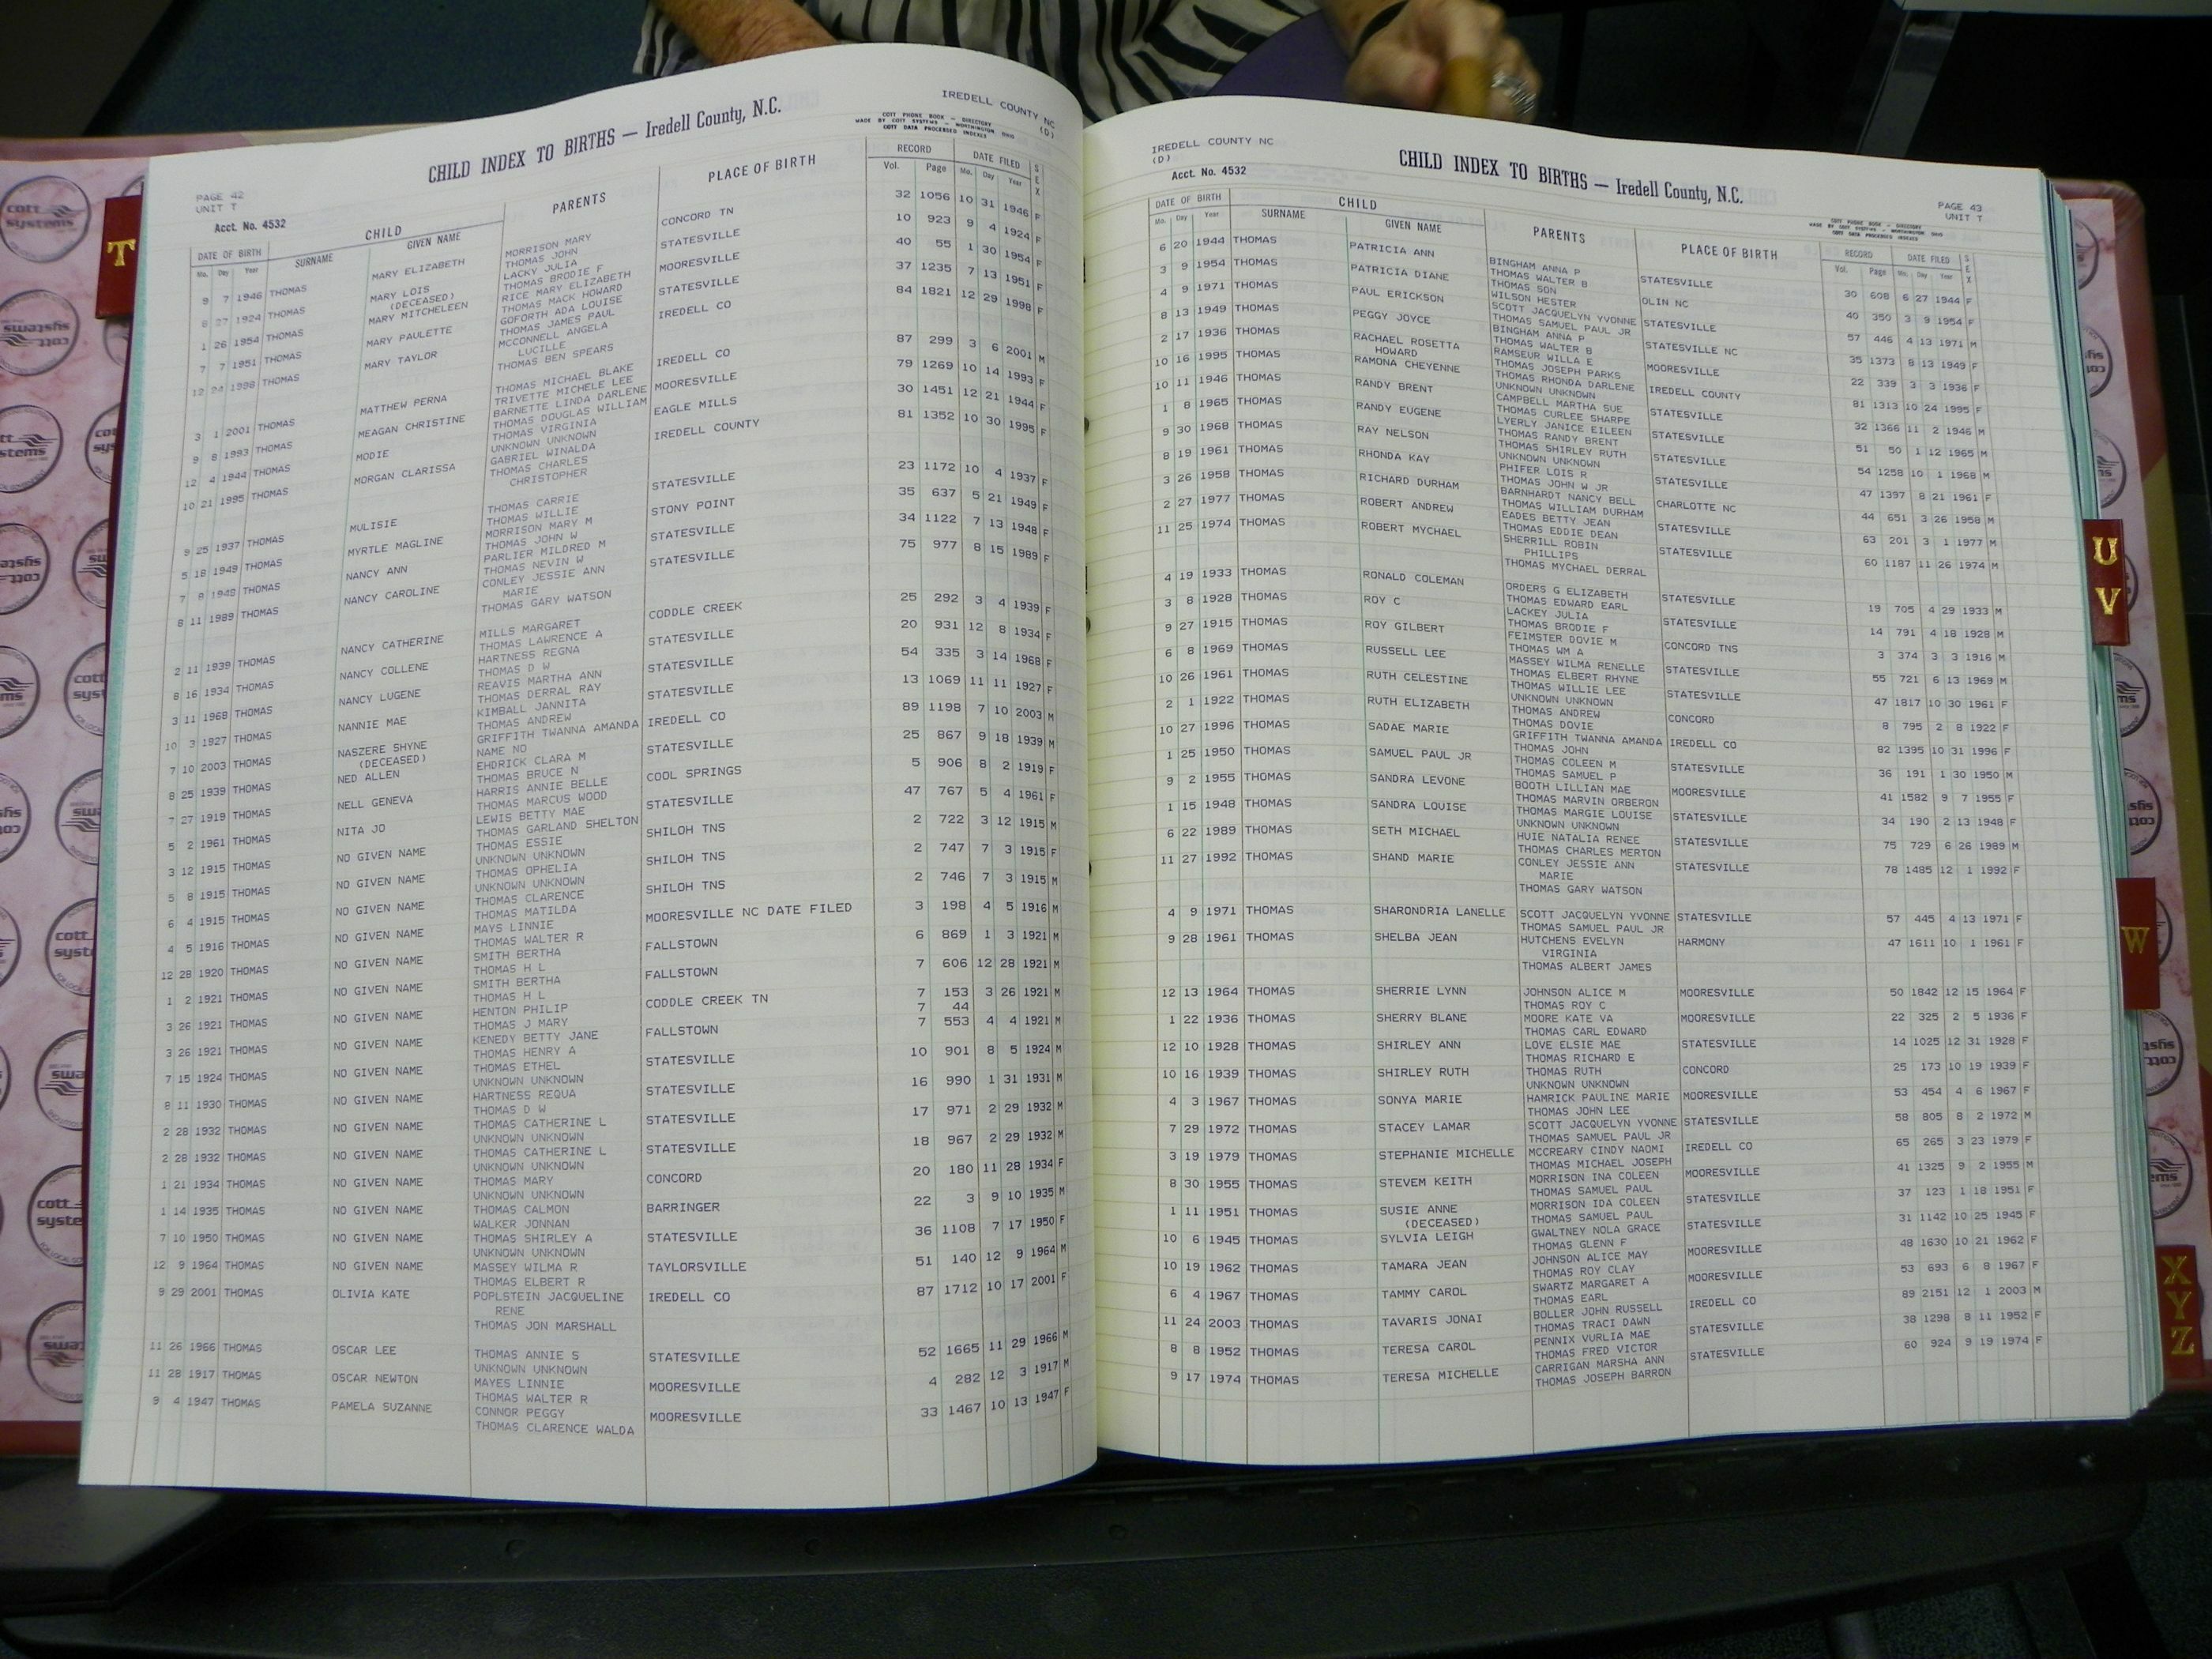 IREDELL COUNTY NC
(D)
CHILD INDEX TO BIRTHS — Iredell County, N.C.
COTT PHONE BOOK — DIRECTORY
MADE BY COTT SYSTEMS — WORTHINGTON OHIO
COTT DATA PROCESSED INDEXES
PAGE 42
UNIT T
Acct. No. 4532
DATE OF BIRTH CHILD PARENTS PLACE OF BIRTH RECORD DATE FILED SEX
Mo. Day Year SURNAME GIVEN NAME Vol. Page Mo. Day Year
9 7 1946 THOMAS MARY ELIZABETH MORRISON MARY CONCORD TN 32 1056 10 31 1946 F
THOMAS JOHN
8 27 1924 THOMAS MARY LOIS LACKY JULIA STATESVILLE 10 923 9 4 1924 F
(DECEASED) THOMAS BRODIE F
1 26 1954 THOMAS MARY MITCHELEEN RICE MARY ELIZABETH MOORESVILLE 40 55 1 30 1954 F
THOMAS MACK HOWARD
7 7 1951 THOMAS MARY PAULETTE GOFORTH ADA LOUISE STATESVILLE 37 1235 7 13 1951 F
THOMAS JAMES PAUL
12 24 1998 THOMAS MARY TAYLOR MCCONNELL ANGELA IREDELL CO 84 1821 12 29 1998 F
LUCILLE
THOMAS BEN SPEARS
3 1 2001 THOMAS MATTHEW PERNA THOMAS MICHAEL BLAKE IREDELL CO 87 299 3 6 2001 M
TRIVETTE MICHELE LEE
9 8 1993 THOMAS MEAGAN CHRISTINE BARNETTE LINDA DARLENE MOORESVILLE 79 1269 10 14 1993 F
THOMAS DOUGLAS WILLIAM
12 4 1944 THOMAS MODIE THOMAS VIRGINIA EAGLE MILLS 30 1451 12 21 1944 F
UNKNOWN UNKNOWN
10 21 1995 THOMAS MORGAN CLARISSA GABRIEL WINALDA IREDELL COUNTY 81 1352 10 30 1995 F
THOMAS CHARLES
CHRISTOPHER
9 25 1937 THOMAS MULISIE THOMAS CARRIE STATESVILLE 23 1172 10 4 1937 F
THOMAS WILLIE
5 18 1949 THOMAS MYRTLE MAGLINE MORRISON MARY M STONY POINT 35 637 5 21 1949 F
THOMAS JOHN W
7 8 1948 THOMAS NANCY ANN PARLIER MILDRED M STATESVILLE 34 1122 7 13 1948 F
THOMAS NEVIN W
8 11 1989 THOMAS NANCY CAROLINE CONLEY JESSIE ANN STATESVILLE 75 977 8 15 1989 F
MARIE
THOMAS GARY WATSON
2 11 1939 THOMAS NANCY CATHERINE MILLS MARGARET CODDLE CREEK 25 292 3 4 1939 F
THOMAS LAWRENCE A
8 16 1934 THOMAS NANCY COLLENE HARTNESS REGNA STATESVILLE 20 931 12 8 1934 F
THOMAS D W
3 11 1968 THOMAS NANCY LUGENE REAVIS MARTHA ANN STATESVILLE 54 335 3 14 1968 F
THOMAS DERRAL RAY
10 3 1927 THOMAS NANNIE MAE KIMBALL JANNITA STATESVILLE 13 1069 11 11 1927 F
THOMAS ANDREW
7 10 2003 THOMAS NASZERE SHYNE GRIFFITH TWANNA AMANDA IREDELL CO 89 1198 7 10 2003 M
(DECEASED) NAME NO
8 25 1939 THOMAS NED ALLEN EHDRICK CLARA M STATESVILLE 25 867 9 18 1939 M
THOMAS BRUCE N
7 27 1919 THOMAS NELL GENEVA HARRIS ANNIE BELLE COOL SPRINGS 5 906 8 2 1919 F
THOMAS MARCUS WOOD
5 2 1961 THOMAS NITA JO LEWIS BETTY MAE STATESVILLE 47 767 5 4 1961 F
THOMAS GARLAND SHELTON
3 12 1915 THOMAS NO GIVEN NAME THOMAS ESSIE SHILOH TNS 2 722 3 12 1915 M
UNKNOWN UNKNOWN
5 8 1915 THOMAS NO GIVEN NAME THOMAS OPHELIA SHILOH TNS 2 747 7 3 1915 F
UNKNOWN UNKNOWN
6 4 1915 THOMAS NO GIVEN NAME THOMAS CLARENCE SHILOH TNS 2 746 7 3 1915 M
THOMAS MATILDA
4 5 1916 THOMAS NO GIVEN NAME MAYS LINNIE MOORESVILLE NC DATE FILED 3 198 4 5 1916 M
THOMAS WALTER R
12 28 1920 THOMAS NO GIVEN NAME SMITH BERTHA FALLSTOWN 6 869 1 3 1921 M
THOMAS H L
1 2 1921 THOMAS NO GIVEN NAME SMITH BERTHA FALLSTOWN 7 606 12 28 1921 M
THOMAS H L
3 26 1921 THOMAS NO GIVEN NAME HENTON PHILIP CODDLE CREEK TN 7 153 3 26 1921 M
THOMAS J MARY 7 44
3 26 1921 THOMAS NO GIVEN NAME KENEDY BETTY JANE FALLSTOWN 7 553 4 4 1921 M
THOMAS HENRY A
7 15 1924 THOMAS NO GIVEN NAME THOMAS ETHEL STATESVILLE 10 901 8 5 1924 M
UNKNOWN UNKNOWN
8 11 1930 THOMAS NO GIVEN NAME HARTNESS REQUA STATESVILLE 16 990 1 31 1931 M
THOMAS D W
2 28 1932 THOMAS NO GIVEN NAME THOMAS CATHERINE L STATESVILLE 17 971 2 29 1932 M
UNKNOWN UNKNOWN
2 28 1932 THOMAS NO GIVEN NAME THOMAS CATHERINE L STATESVILLE 18 967 2 29 1932 M
UNKNOWN UNKNOWN
1 21 1934 THOMAS NO GIVEN NAME THOMAS MARY CONCORD 20 180 11 28 1934 F
UNKNOWN UNKNOWN
1 14 1935 THOMAS NO GIVEN NAME THOMAS CALMON BARRINGER 22 3 9 10 1935 M
WALKER JONNAN
7 10 1950 THOMAS NO GIVEN NAME THOMAS SHIRLEY A STATESVILLE 36 1108 7 17 1950 F
UNKNOWN UNKNOWN
12 9 1964 THOMAS NO GIVEN NAME MASSEY WILMA R TAYLORSVILLE 51 140 12 9 1964 M
THOMAS ELBERT R
9 29 2001 THOMAS OLIVIA KATE POPLSTEIN JACQUELINE IREDELL CO 87 1712 10 17 2001 F
RENE
THOMAS JON MARSHALL
11 26 1966 THOMAS OSCAR LEE THOMAS ANNIE S STATESVILLE 52 1665 11 29 1966 M
UNKNOWN UNKNOWN
11 28 1917 THOMAS OSCAR NEWTON MAYES LINNIE MOORESVILLE 4 282 12 3 1917 M
THOMAS WALTER R
9 4 1947 THOMAS PAMELA SUZANNE CONNOR PEGGY MOORESVILLE 33 1467 10 13 1947 F
THOMAS CLARENCE WALDA
IREDELL COUNTY NC
(D)
Acct. No. 4532
CHILD INDEX TO BIRTHS — Iredell County, N.C.
PAGE 43
UNIT T
COTT PHONE BOOK — DIRECTORY
MADE BY COTT SYSTEMS — WORTHINGTON OHIO
COTT DATA PROCESSED INDEXES
DATE OF BIRTH CHILD PARENTS PLACE OF BIRTH RECORD DATE FILED SEX
Mo. Day Year SURNAME GIVEN NAME Vol. Page Mo. Day Year
6 20 1944 THOMAS PATRICIA ANN BINGHAM ANNA P STATESVILLE 30 608 6 27 1944 F
THOMAS WALTER B
3 9 1954 THOMAS PATRICIA DIANE THOMAS SON OLIN NC 40 350 3 9 1954 F
WILSON HESTER
4 9 1971 THOMAS PAUL ERICKSON SCOTT JACQUELYN YVONNE STATESVILLE 57 446 4 13 1971 M
THOMAS SAMUEL PAUL JR
8 13 1949 THOMAS PEGGY JOYCE BINGHAM ANNA P STATESVILLE NC 35 1373 8 13 1949 F
THOMAS WALTER B
2 17 1936 THOMAS RACHAEL ROSETTA RAMSEUR WILLA E MOORESVILLE 22 339 3 3 1936 F
HOWARD THOMAS JOSEPH PARKS
10 16 1995 THOMAS RAMONA CHEYENNE THOMAS RHONDA DARLENE IREDELL COUNTY 81 1313 10 24 1995 F
UNKNOWN UNKNOWN
10 11 1946 THOMAS RANDY BRENT CAMPBELL MARTHA SUE STATESVILLE 32 1366 11 2 1946 M
THOMAS CURLEE SHARPE
1 8 1965 THOMAS RANDY EUGENE LYERLY JANICE EILEEN STATESVILLE 51 50 1 12 1965 M
THOMAS RANDY BRENT
9 30 1968 THOMAS RAY NELSON THOMAS SHIRLEY RUTH STATESVILLE 54 1258 10 1 1968 M
UNKNOWN UNKNOWN
8 19 1961 THOMAS RHONDA KAY PHIFER LOIS R STATESVILLE 47 1397 8 21 1961 F
THOMAS JOHN W JR
3 26 1958 THOMAS RICHARD DURHAM BARNHARDT NANCY BELL CHARLOTTE NC 44 651 3 26 1958 M
THOMAS WILLIAM DURHAM
2 27 1977 THOMAS ROBERT ANDREW EADES BETTY JEAN STATESVILLE 63 201 3 1 1977 M
THOMAS EDDIE DEAN
11 25 1974 THOMAS ROBERT MYCHAEL SHERRILL ROBIN STATESVILLE 60 1187 11 26 1974 M
PHILLIPS
THOMAS MYCHAEL DERRAL
4 19 1933 THOMAS RONALD COLEMAN ORDERS G ELIZABETH STATESVILLE 19 705 4 29 1933 M
THOMAS EDWARD EARL
3 8 1928 THOMAS ROY C LACKEY JULIA STATESVILLE 14 791 4 18 1928 M
THOMAS BRODIE F
9 27 1915 THOMAS ROY GILBERT FEIMSTER DOVIE M CONCORD TNS 3 374 3 3 1916 M
THOMAS WM A
6 8 1969 THOMAS RUSSELL LEE MASSEY WILMA RENELLE STATESVILLE 55 721 6 13 1969 M
THOMAS ELBERT RHYNE
10 26 1961 THOMAS RUTH CELESTINE THOMAS WILLIE LEE STATESVILLE 47 1817 10 30 1961 F
UNKNOWN UNKNOWN
2 1 1922 THOMAS RUTH ELIZABETH THOMAS ANDREW CONCORD 8 795 2 8 1922 F
THOMAS DOVIE
10 27 1996 THOMAS SADAE MARIE GRIFFITH TWANNA AMANDA IREDELL CO 82 1395 10 31 1996 F
THOMAS JOHN
1 25 1950 THOMAS SAMUEL PAUL JR THOMAS COLEEN M STATESVILLE 36 191 1 30 1950 M
THOMAS SAMUEL P
9 2 1955 THOMAS SANDRA LEVONE BOOTH LILLIAN MAE MOORESVILLE 41 1582 9 7 1955 F
THOMAS MARVIN ORBERON
1 15 1948 THOMAS SANDRA LOUISE THOMAS MARGIE LOUISE STATESVILLE 34 190 2 13 1948 F
UNKNOWN UNKNOWN
6 22 1989 THOMAS SETH MICHAEL HUIE NATALIA RENEE STATESVILLE 75 729 6 26 1989 M
THOMAS CHARLES MERTON
11 27 1992 THOMAS SHAND MARIE CONLEY JESSIE ANN STATESVILLE 78 1485 12 1 1992 F
MARIE
THOMAS GARY WATSON
4 9 1971 THOMAS SHARONDRIA LANELLE SCOTT JACQUELYN YVONNE STATESVILLE 57 445 4 13 1971 F
THOMAS SAMUEL PAUL JR
9 28 1961 THOMAS SHELBA JEAN HUTCHENS EVELYN HARMONY 47 1611 10 1 1961 F
VIRGINIA
THOMAS ALBERT JAMES
12 13 1964 THOMAS SHERRIE LYNN JOHNSON ALICE M MOORESVILLE 50 1842 12 15 1964 F
THOMAS ROY C
1 22 1936 THOMAS SHERRY BLANE MOORE KATE VA MOORESVILLE 22 325 2 5 1936 F
THOMAS CARL EDWARD
12 10 1928 THOMAS SHIRLEY ANN LOVE ELSIE MAE STATESVILLE 14 1025 12 31 1928 F
THOMAS RICHARD E
10 16 1939 THOMAS SHIRLEY RUTH THOMAS RUTH CONCORD 25 173 10 19 1939 F
UNKNOWN UNKNOWN
4 3 1967 THOMAS SONYA MARIE HAMRICK PAULINE MARIE MOORESVILLE 53 454 4 6 1967 F
THOMAS JOHN LEE
7 29 1972 THOMAS STACEY LAMAR SCOTT JACQUELYN YVONNE STATESVILLE 58 805 8 2 1972 M
THOMAS SAMUEL PAUL JR
3 19 1979 THOMAS STEPHANIE MICHELLE MCCREARY CINDY NAOMI IREDELL CO 65 265 3 23 1979 F
THOMAS MICHAEL JOSEPH
8 30 1955 THOMAS STEVEM KEITH MORRISON INA COLEEN MOORESVILLE 41 1325 9 2 1955 M
THOMAS SAMUEL PAUL
1 11 1951 THOMAS SUSIE ANNE MORRISON IDA COLEEN STATESVILLE 37 123 1 18 1951 F
(DECEASED) THOMAS SAMUEL PAUL
10 6 1945 THOMAS SYLVIA LEIGH GWALTNEY NOLA GRACE STATESVILLE 31 1142 10 25 1945 F
THOMAS GLENN F
10 19 1962 THOMAS TAMARA JEAN JOHNSON ALICE MAY MOORESVILLE 48 1630 10 21 1962 F
THOMAS ROY CLAY
6 4 1967 THOMAS TAMMY CAROL SWARTZ MARGARET A MOORESVILLE 53 693 6 8 1967 F
THOMAS EARL
11 24 2003 THOMAS TAVARIS JONAI BOLLER JOHN RUSSELL IREDELL CO 89 2151 12 1 2003 M
THOMAS TRACI DAWN
8 8 1952 THOMAS TERESA CAROL PENNIX VURLIA MAE STATESVILLE 38 1298 8 11 1952 F
THOMAS FRED VICTOR
9 17 1974 THOMAS TERESA MICHELLE CARRIGAN MARSHA ANN STATESVILLE 60 924 9 19 1974 F
THOMAS JOSEPH BARRON
T
U
V
W
X
Y
Z
cott
systems